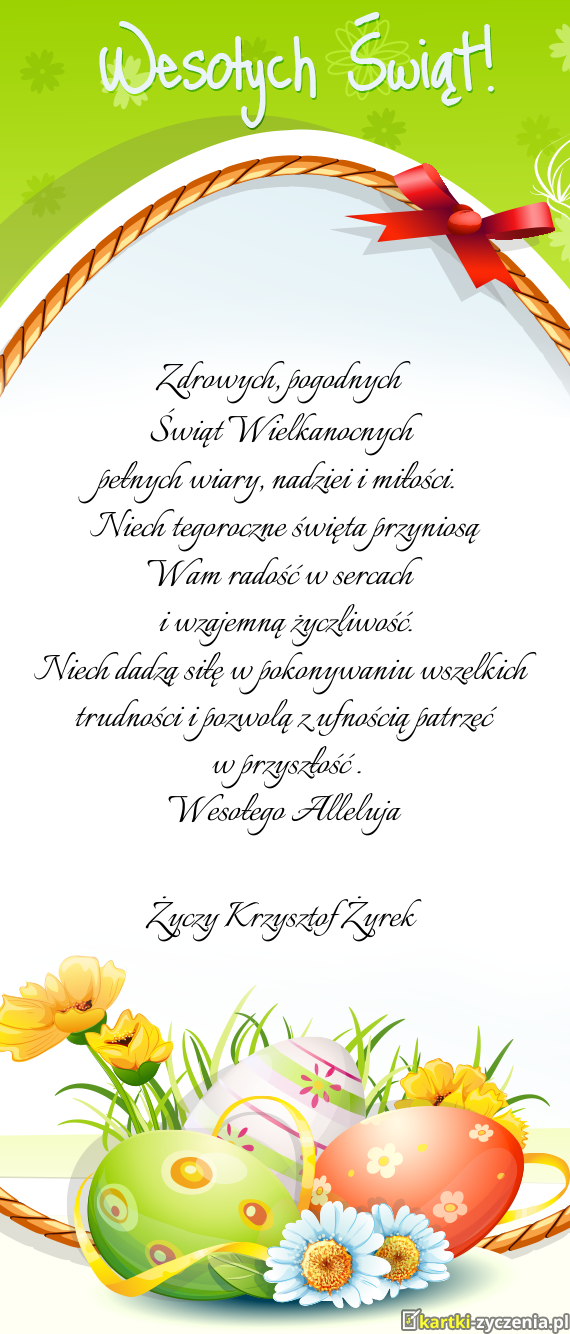 Wesołych Świąt!
Zdrowych, pogodnych
Świąt Wielkanocnych
pełnych wiary, nadziei i miłości.
Niech tegoroczne święta przyniosą
Wam radość w sercach
i wzajemną życzliwość.
Niech dadzą siłę w pokonywaniu wszelkich
trudności i pozwolą z ufnością patrzeć
w przyszłość .
Wesołego Alleluja
Życzy Krzysztof Żyrek
kartki-zyczenia.pl